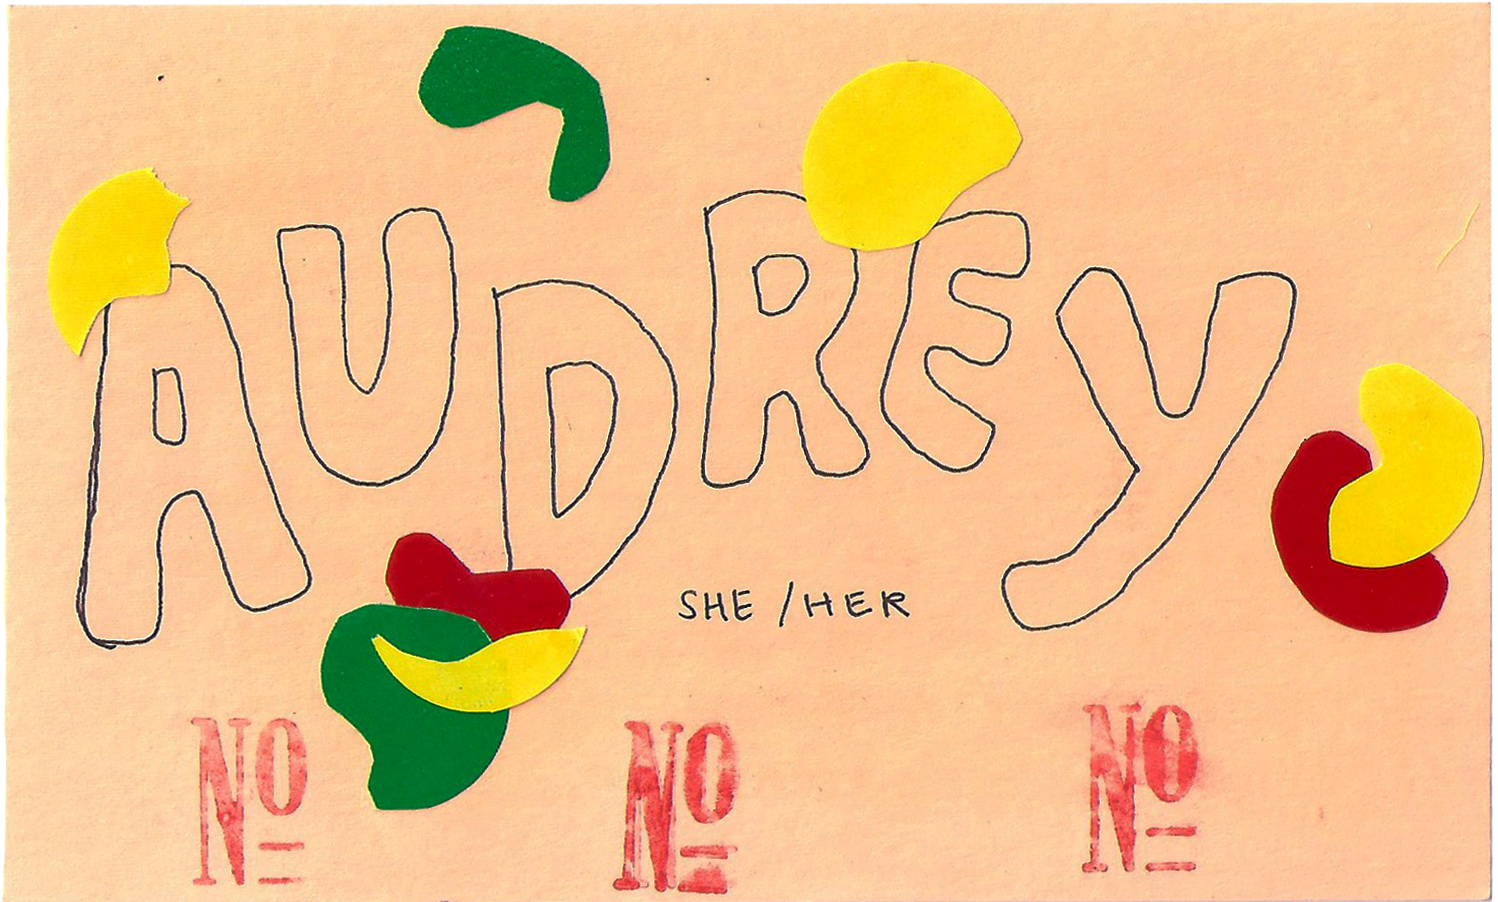 AUDREY
SHE/HER
No No No